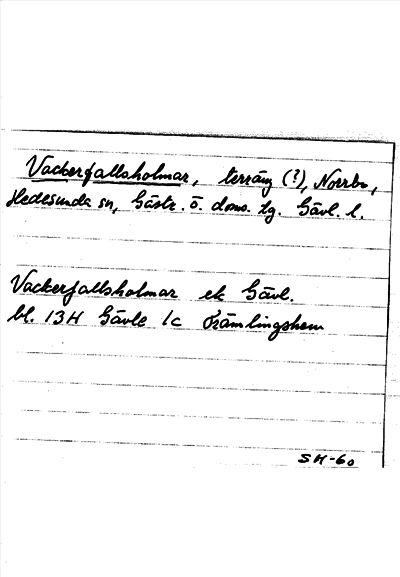 Vackerfallsholmar, terräng (?), Norrbo,
Hedesunda sn, Gästr. ö. doms. tg. Gävl. l.
Vackerfallsholmar ek Gävl.
bl. 13H Gävle 1c Trämlingshem
SH-60